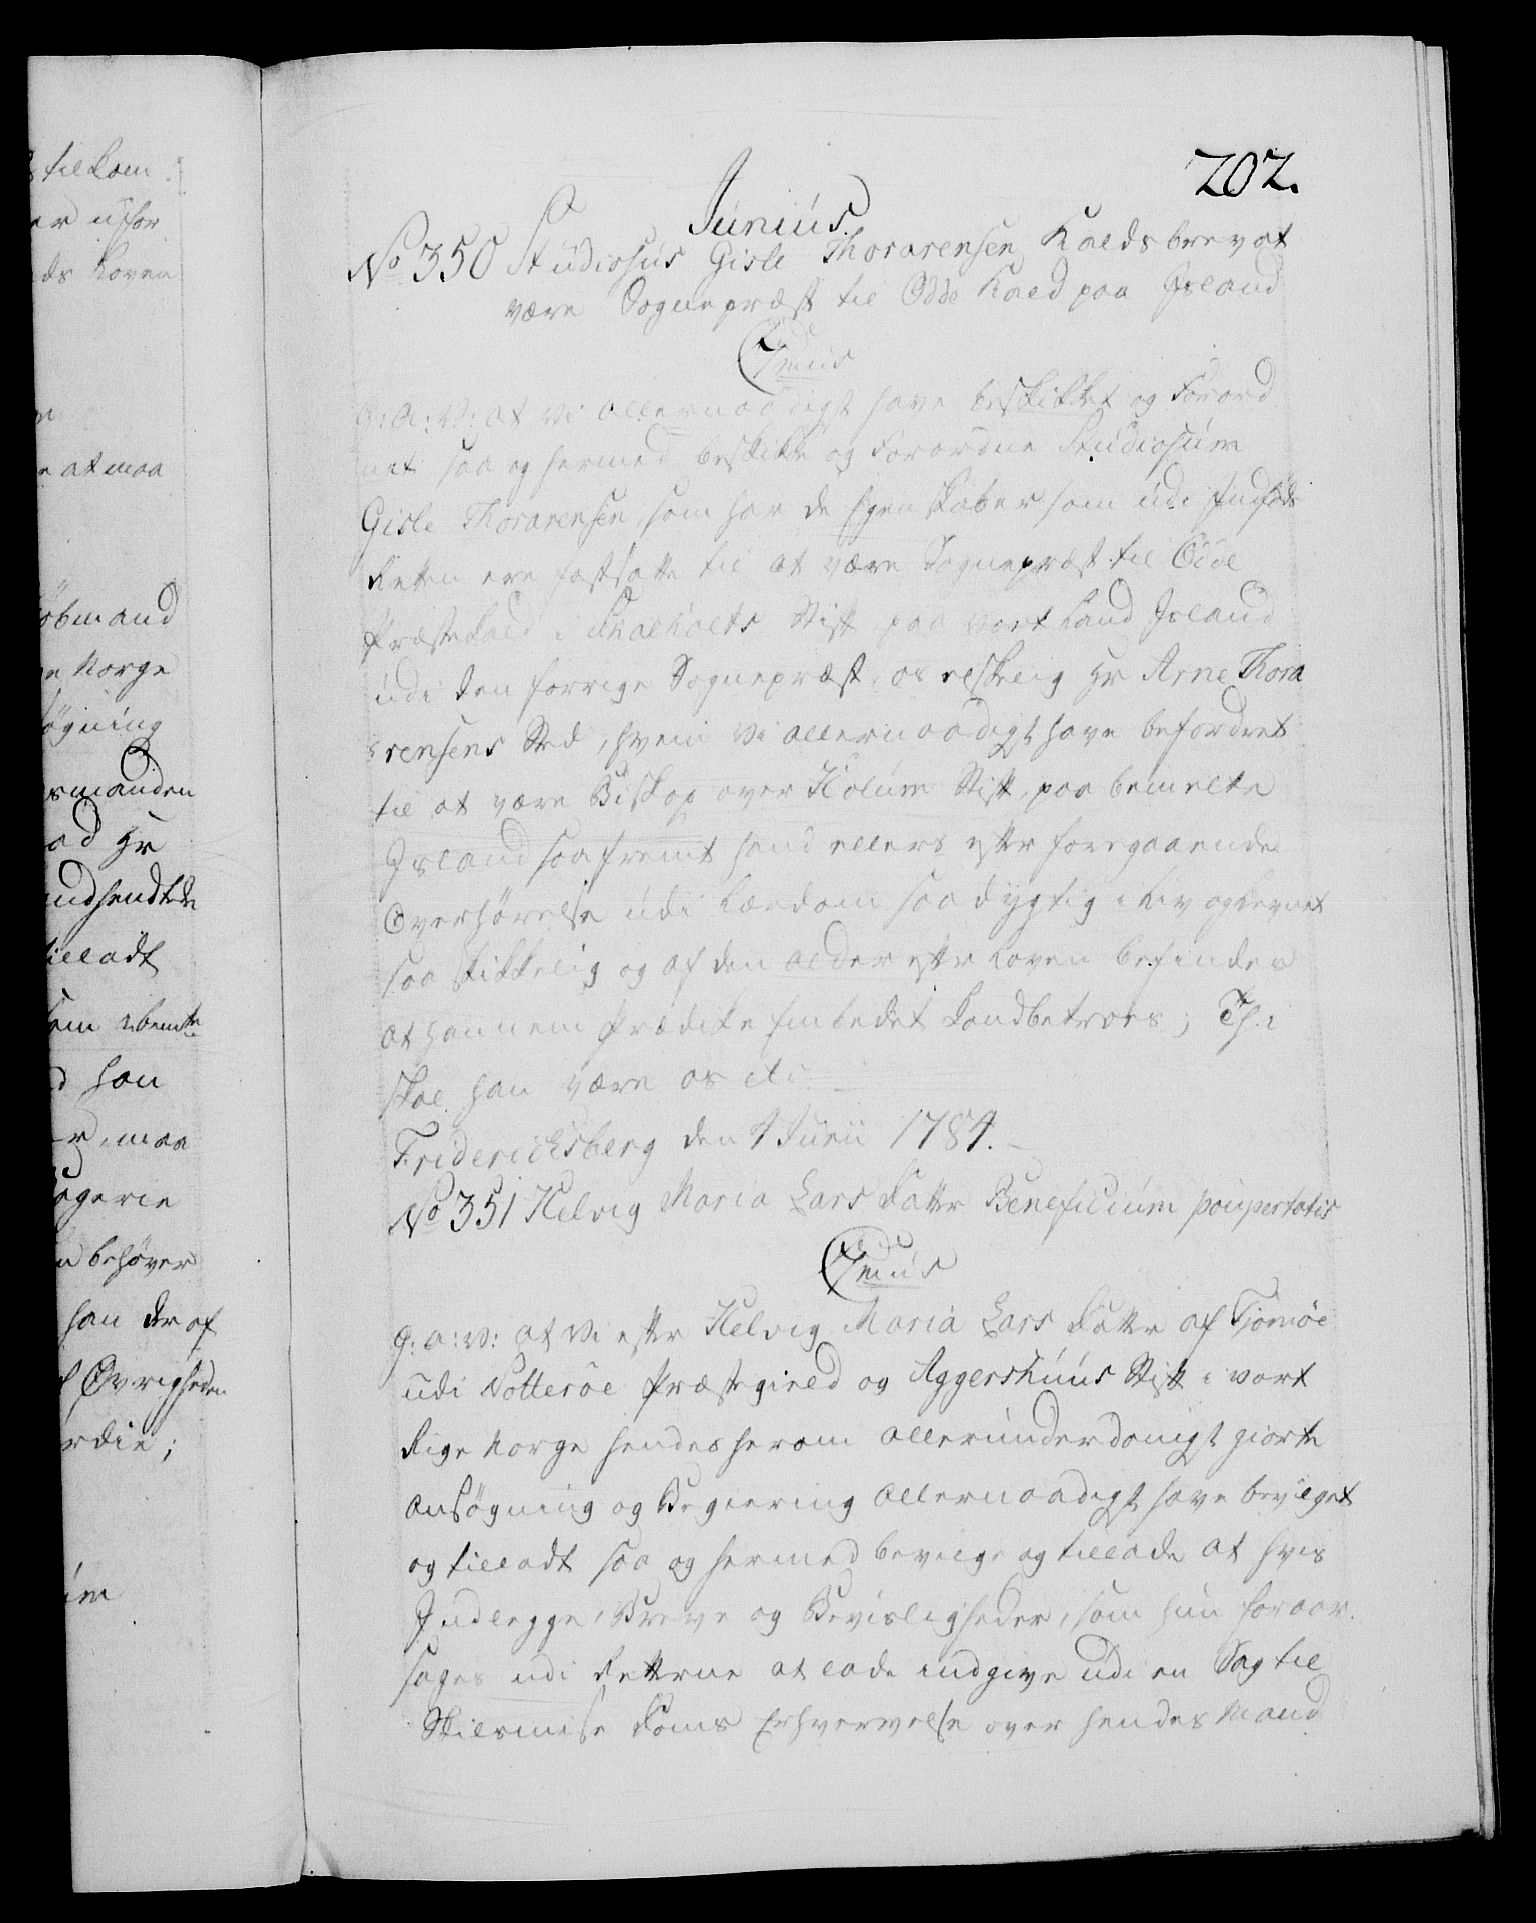 202.
Junius.
No 350 Studiosus Gisle Thorarensen Kaldsbrev at
være Sognepræst til Odde Kald paa Jsland
C 7mus
G: A: V: at Vi allernaadigst have beskikket og Forord
net saa og hermed beskikke og Forordne Studiosum
Gisle Thorarensen, som har de Egenskaber som udi Indføds
Retten ere fastsatte til at være Sognepræst til Odde
Præstekald i Skalholts Stift paa vort Land Jsland
udi den forrige Sognepræst, os elskelig Hr Arne Thora
rensens Sted, hvem Vi allernaadigst have befordret
til at være Biskop over Holum Stift, paa bemelte
Jsland saafremt hand ellers efter foregaaende
Overhørelse udi Lærdom saa dygtig i Liv og Levnet
saa skikkelig og af den alder efter Loven befindes
at hannem Prædike Embedet kand betroes; Thi
skal han være os etc
Fridericksberg den 4 Junii 1784.
No 351 Helvig Maria Lars datter Beneficium paupertatis
C 7mus
G: A: V: at Vi efter Helvig Maria Lars datter af Tjømøe
udi Nøtterøe Præstegield og Aggershuus Stift i vort
Rige Norge hendes herom allerunderdanigst giorte
ansøgning og Begiering allernaadigst have bevilget
og tilladt saa og hermed bevilge og tillade at hvis
Indlegge, Breve og Bevisligheder, som hun foraar
sages udi Retterne at lade indgive udi en Sag til
Skilsmise doms Erhvervelse over hendes Mand
tilkom
er ufor
ds Loven
e at maa
øbmand
e Norge
øgning
smanden
ad Hr
indsendte
tilladt
som ibemte
d han
r, maa
ageren
n behøver
han der af
Øvrigheden
rdie;